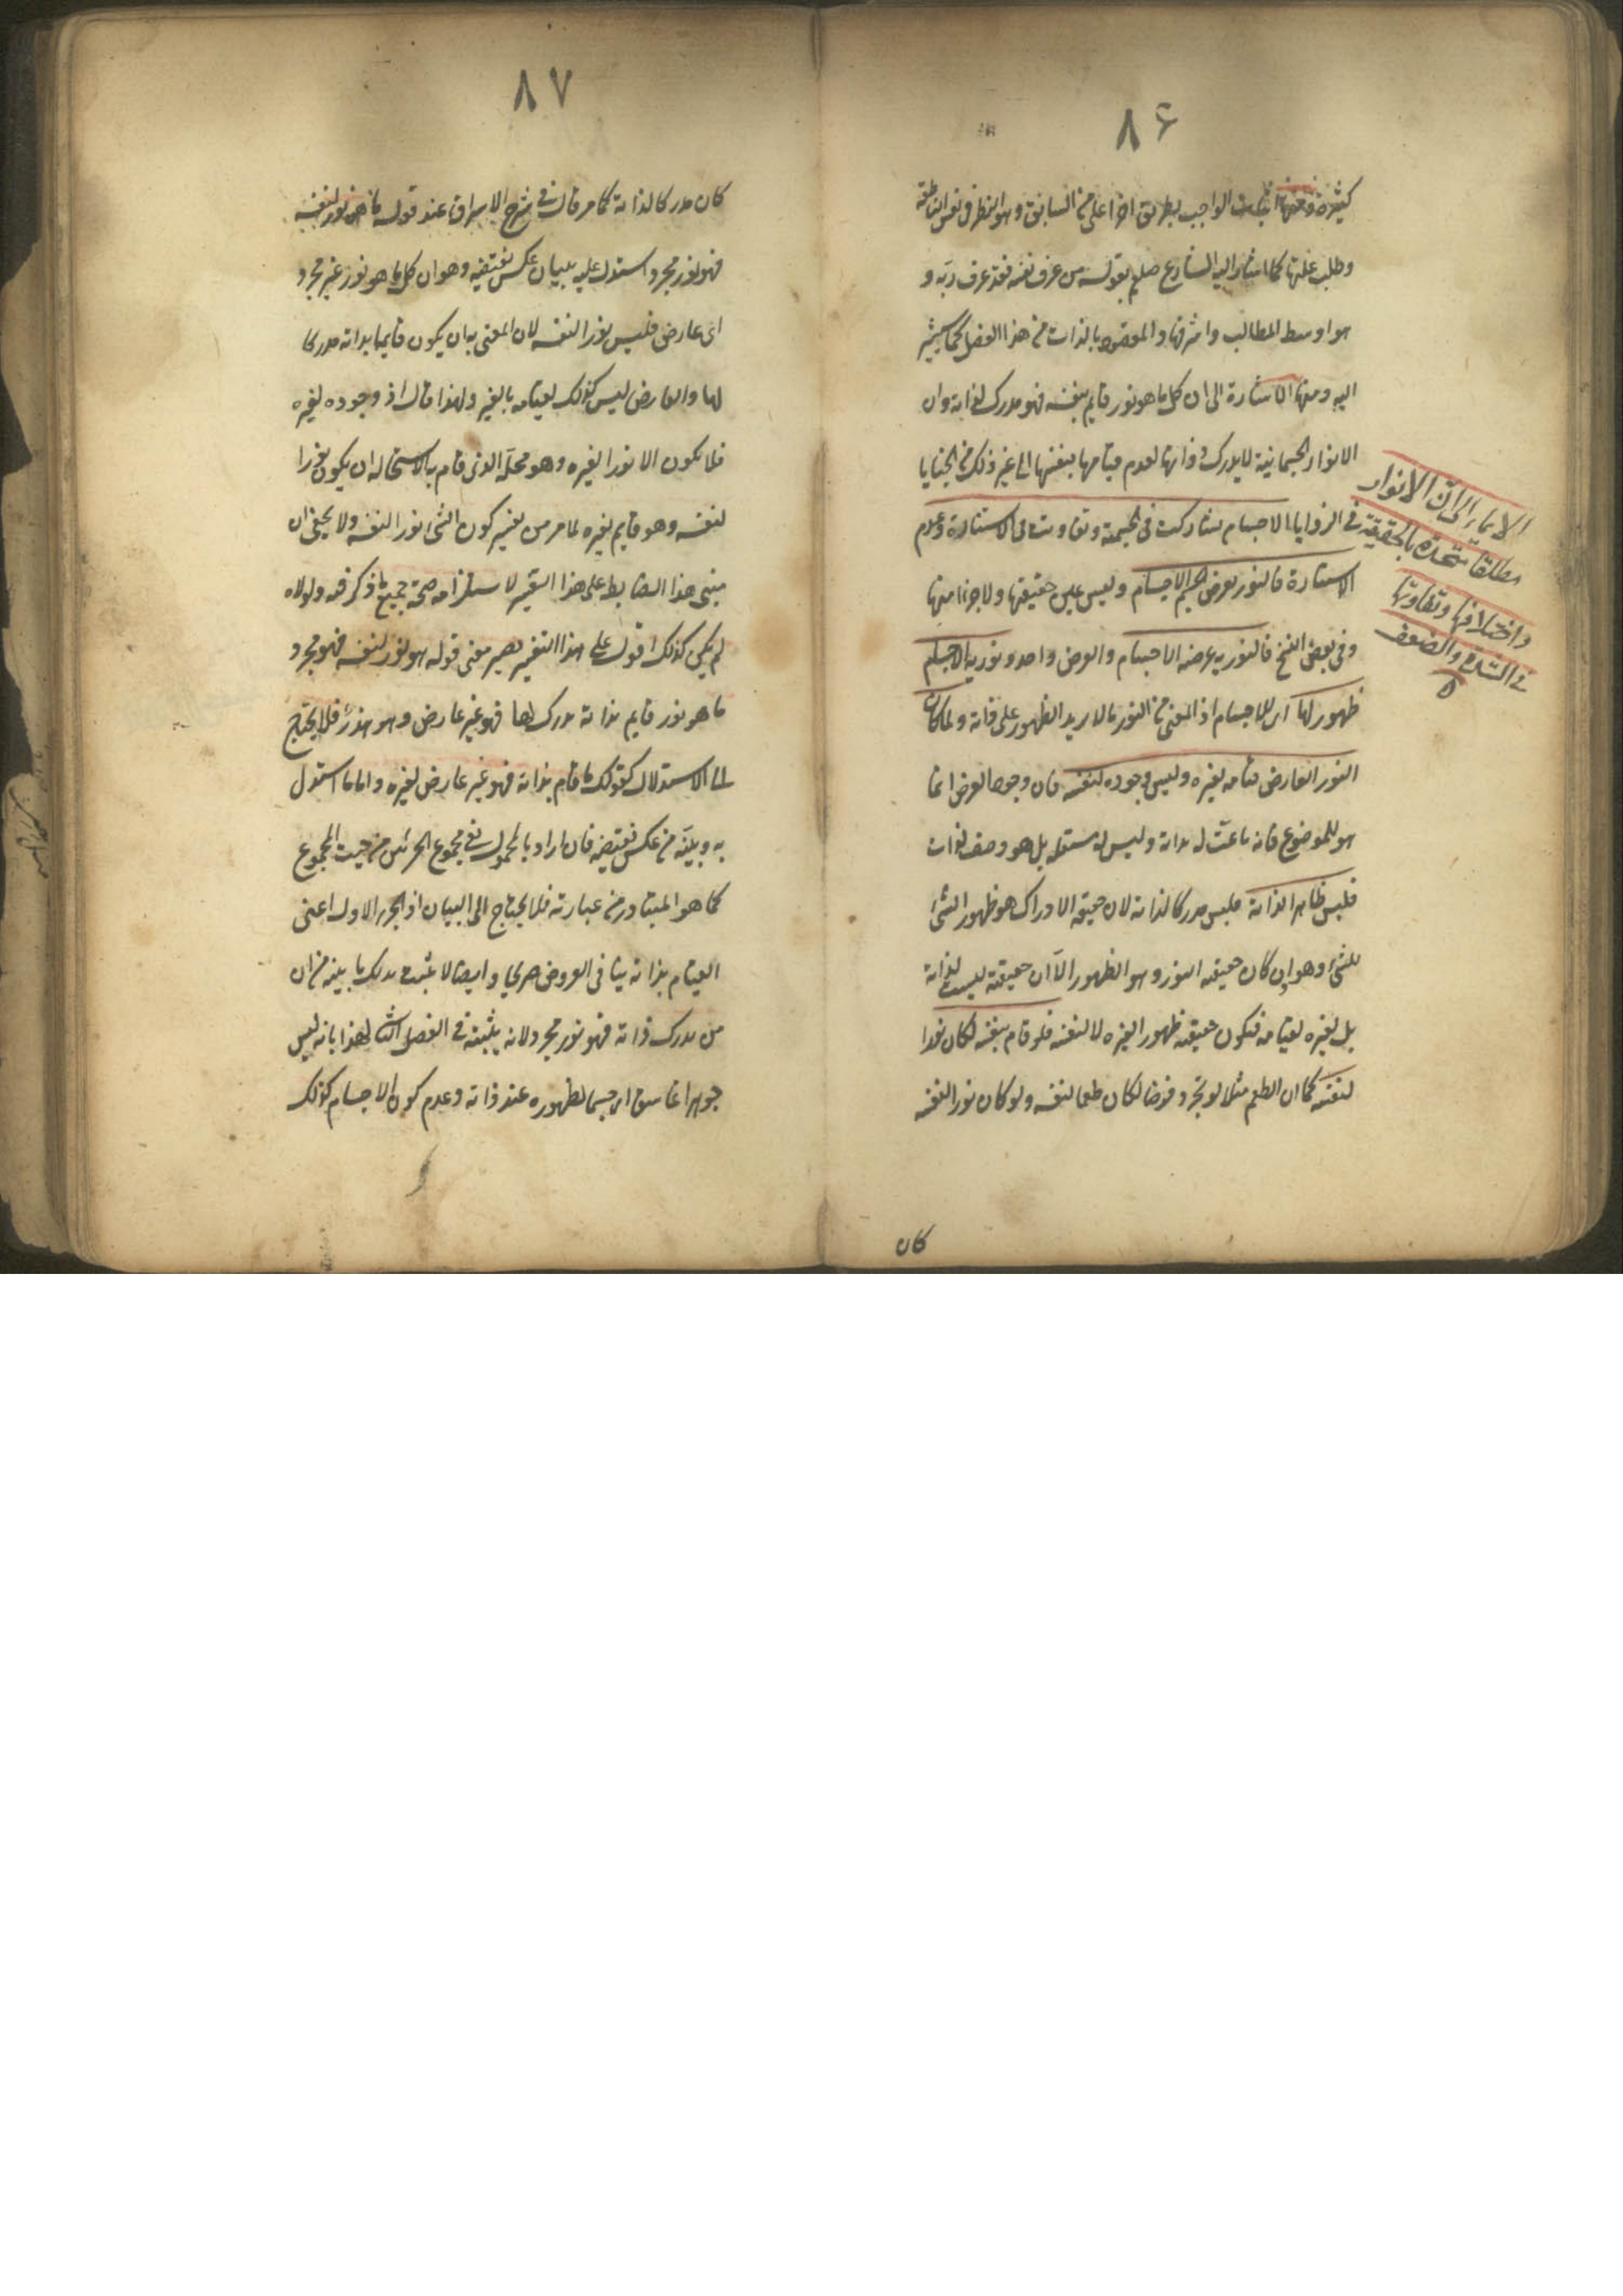 ٨۶
كثيرة فمنها اثبات الواجب بطريق اخر اعلى من السابق وهو النظر فى نفس الناطقة
وطلب علتها كما اشار اليه الشارع صلعم بقوله من عرف نفسه فقد عرف ربه و
هو اوسط المطالب واشرفها والمقصود بالذات من هذا الفصل كما سيشير
اليه ومنها الاشارة الى ان كل ما هو نور قايم بنفسه فهو مدرك لذاته وان
الانوار الجسمانية لا يدرك ذواتها لعدم قيامها بنفسها الى غير ذلك من الخبايا
فى الزوايا الاجسام تشاركت فى الجسمية وتفاوتت فى الاستنارة وعدم
الاستنارة فالنور يعرض لجسم الاجسام وليس عين حقيقتها ولا جزءا منها
وفى بعض النسخ فالنورية عرضه الاجسام والعرض واحد ونورية الاجسام
ظهور لها اى للاجسام اذ المعنى من النور ما لا يزيد الظهور على ذاته ولما كان
النور العارض قيامه لغيره وليس وجوده لنفسه فان وجود العرض انما
هو للموضوع فانه ناعت له بذاته وليس له مستقلة بل هو وصف لذات
فليس ظاهرا لذاته فليس مدركا لذاته لان حقيقة الادراك هو ظهور الشئ
للشئ وهو وان كان حقيقته النور وهو الظهور الا ان حقيقته ليست لذاته
بل لغيره لقيامه فتكون حقيقته ظهورا لغيره لا لنفسه فلو قام بنفسه لكان نورا
لنفسه كما ان الطعم مثلا لو تجرد فرضا لكان طعما لنفسه ولو كان نورا لنفسه
كان
الايماء الى ان الانوار
مطلقا متحدة بالحقيقة
واختلافها وتفاوتها
فى الشدة والضعف
٨٧
كان مدركا لذاته كما مر قال فى شرح الاشراق عند قوله ما هو نور لنفسه
فهو نور مجرد استدل عليه ببيان عكس نقيضه وهو ان كل ما هو نور غير مجرد
اى عارض فليس نورا لنفسه لان المعنى به ان يكون قايما بذاته مدركا
لها والعارض ليس كذلك لقيامه بالغير ولهذا قال اذ وجوده لغيره
فلا يكون الا نورا لغيره وهو محله الذى قام به لاستحالة ان يكون نورا
لنفسه وهو قايم بغيره لما مر من تفسير كون الشئ نورا لنفسه ولا يخفى ان
مبنى هذا الضابط على هذا التفسير لاستلزامه صحة جميع ما ذكر فيه ولولاه
لم يكن كذلك اقول على هذا التفسير يصير معنى قوله هو نور لنفسه فهو مجرد
ما هو نور قايم بذاته مدرك لها فهو غير عارض وهو هذر فلا يحتاج
الى الاستدلال كقولك ما قام بذاته فهو غير عارض لغيره واما ما استدل
به وبينه من عكس نقيضه فان اراد بالمحمول نفى مجموع الجزئين من حيث المجموع
كما هو المتبادر من عبارته فلا يحتاج الى البيان اذ الجزء الاول اعنى
القيام بذاته ينافى العروض صريحا وايضا لا يثبت بذلك ما بينه من ان
من يدرك ذاته فهو نور مجرد لانه يثبته فى الفصل التالى لهذا بانه ليس
جوهرا غاسقا اى جسما لظهوره عند ذاته وعدم كون الاجسام كذلك